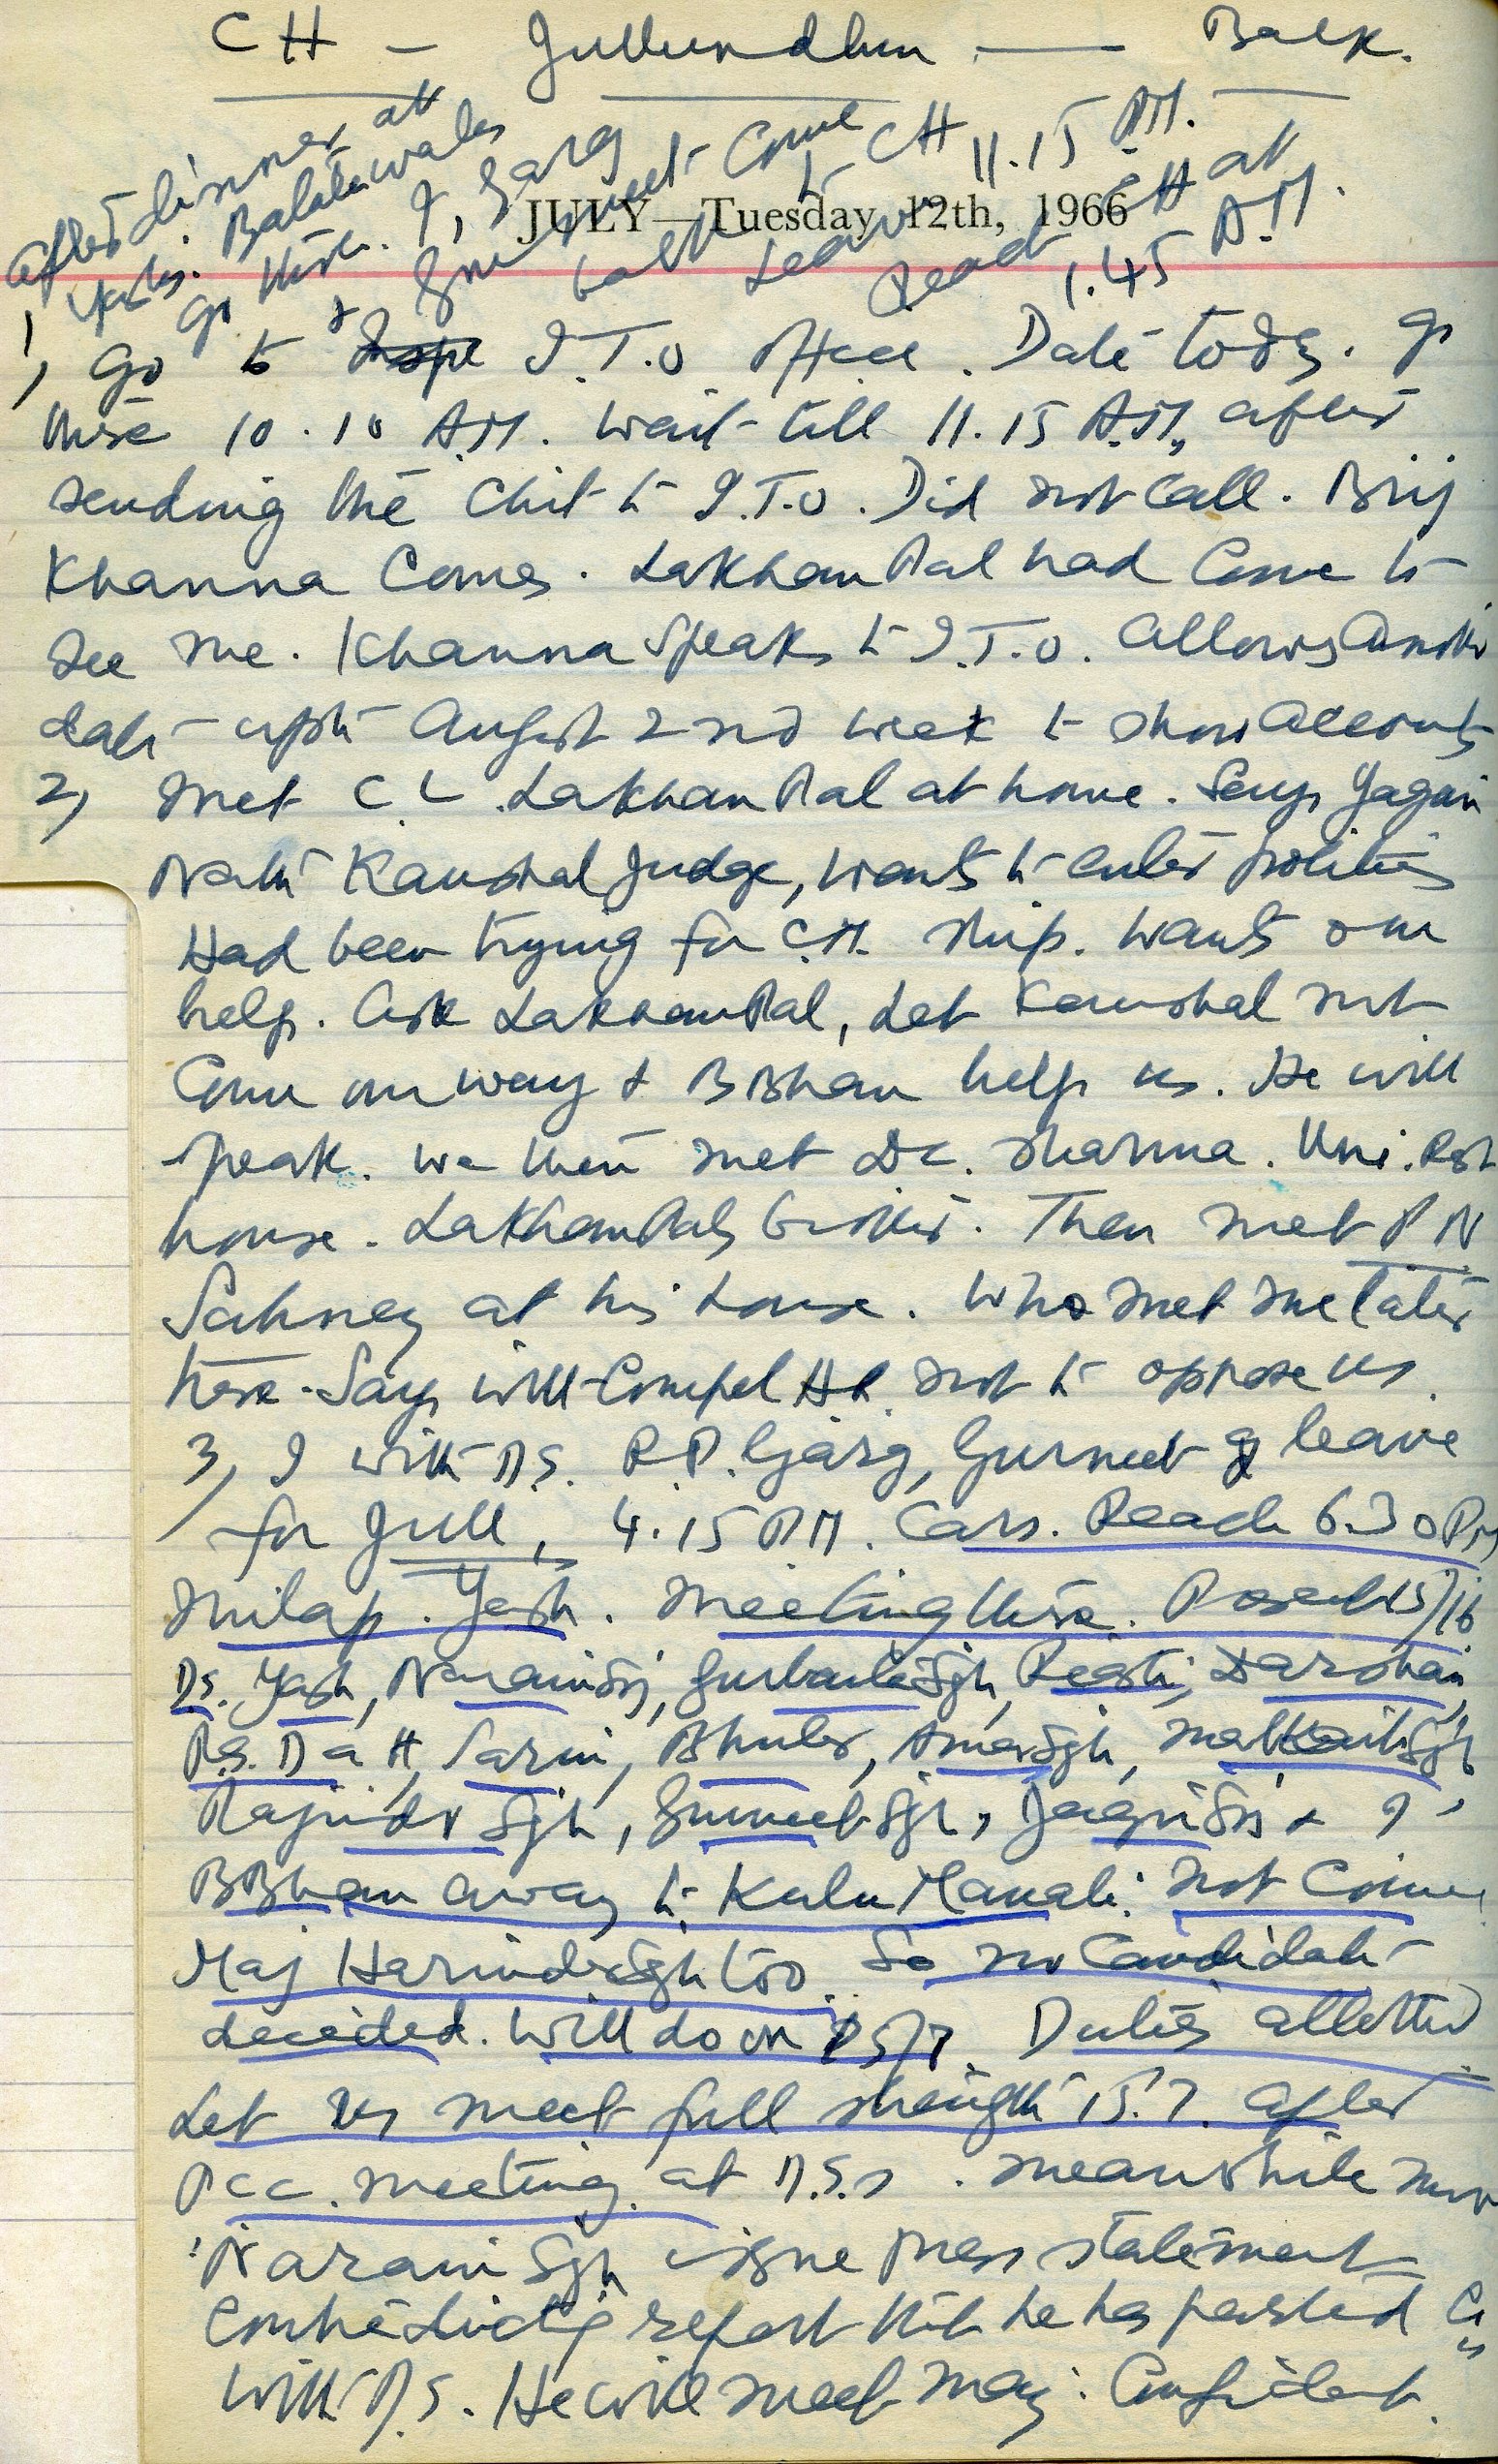 CH — Jullundhur — Back.
After dinner at
Yash's. Balatawalas
go there. I, Garg
& Gurmeet Come
back to CH 11.15 PM.
Leave
Reach CH at
1.45 A.M.
JULY—Tuesday 12th, 1966
1, Go to I.T.O office. Date today. go
there 10.10 A.M. wait till 11.15 A.M., after
sending the Chit to I.T.O. Did not call. Brij
Khanna Comes. LakhanPal had Come to
see me. Khanna Speaks to I.T.O. allows another
date upto August 2nd week to show accounts
2, Met C L. LakhanPal at home. Says Jagan
Nath Kaushal Judge, wants to enter politics
Had been trying for C.M. ship. Wants our
help. Ask LakhanPal, Let Kaushal not
Come our way & BBhan help us. He will
speak. We then met D.C. Sharma. Uni. Rest
house. LakhanPals brother. Then met P N
Sahney at his house. Who met me later
here. Says will Compel HR not to oppose us.
3, I with D.S. R.P. Garg, Gurmeet leave
for Jull, 4.15 P.M. Cars. Reach 6.30 PM
Milap. Yash. Meeting there. Present 15/16
D.S. Yash, NarainSgh, GurbantaSgh, Darshan,
P.S. Datt, Sarin, Bhuler, AmarSgh, MalkaitSgh
Rajinder Sgh, GurmeetSgh, JagjitSgh & I
BBhan away to Kulu Manali. Not Come
Maj HarinderSgh too. So no Candidate
decided. Will do on 15/7. Duties allotted
Let us meet full strength 15.7. after
PCC. meeting at D.S.s. Meanwhile
Narain Sgh issue Press statement
Contradicting report that he has parted Co
with D.S. He will meet Maj. Confident.